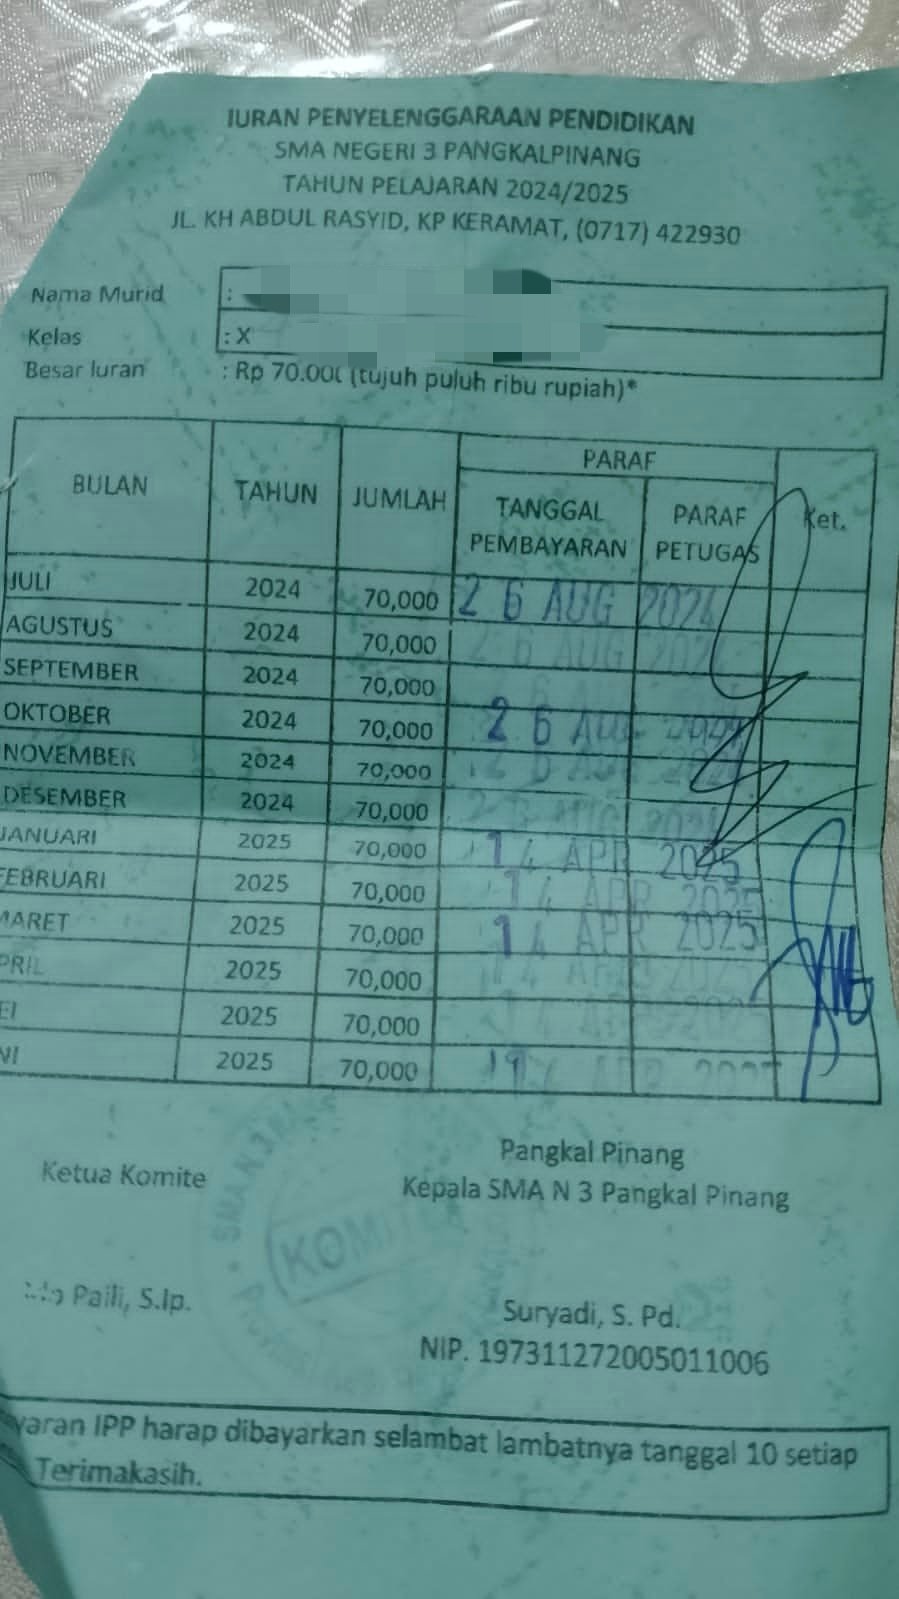 IURAN PENYELENGGARAAN PENDIDIKAN
SMA NEGERI 3 PANGKALPINANG
TAHUN PELAJARAN 2024/2025
JL. KH ABDUL RASYID, KP KERAMAT, (0717) 422930
Nama Murid :
Kelas : X
Besar Iuran : Rp 70.000 (tujuh puluh ribu rupiah)*
BULAN TAHUN JUMLAH PARAF Ket.
TANGGAL PEMBAYARAN PARAF PETUGAS
JULI 2024 70,000 26 AUG 2024
AGUSTUS 2024 70,000 26 AUG 2024
SEPTEMBER 2024 70,000
OKTOBER 2024 70,000 26 AUG 2024
NOVEMBER 2024 70,000 26 AUG 2024
DESEMBER 2024 70,000 26 AUG 2024
JANUARI 2025 70,000 14 APR 2025
FEBRUARI 2025 70,000 14 APR 2025
MARET 2025 70,000 14 APR 2025
PRIL 2025 70,000 14 APR 2025
EI 2025 70,000 14 APR 2025
NI 2025 70,000 14 APR
Ketua Komite
Pangkal Pinang
Kepala SMA N 3 Pangkal Pinang
SMA N 3
KOMI
Paili, S.Ip.
Suryadi, S. Pd.
NIP. 197311272005011006
yaran IPP harap dibayarkan selambat lambatnya tanggal 10 setiap
Terimakasih.